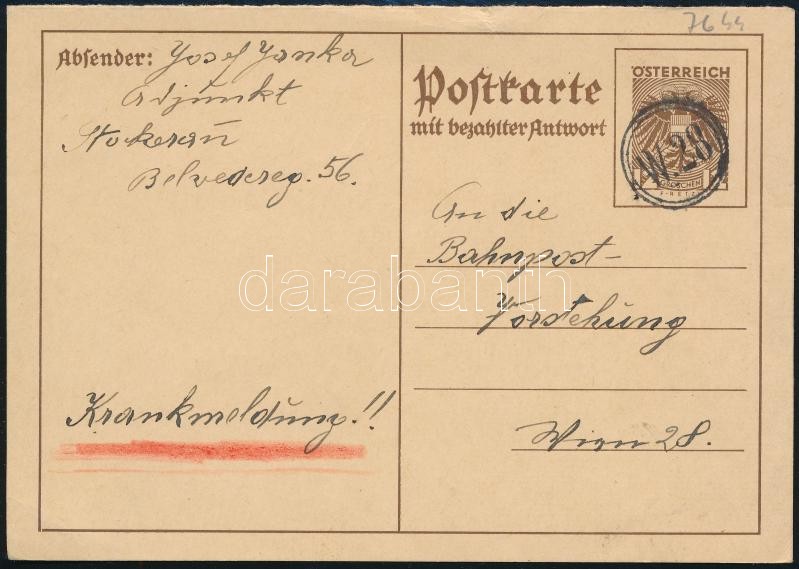 7644
Absender: Josef Janka
Adjunkt
Stockerau
Belvedereg. 56.
Krankmeldung!!
Postkarte
mit bezahlter Antwort
ÖSTERREICH
GROSCHEN
W.28
An die
Bahnpost-
Vorstehung
Wien 28.
darabanth